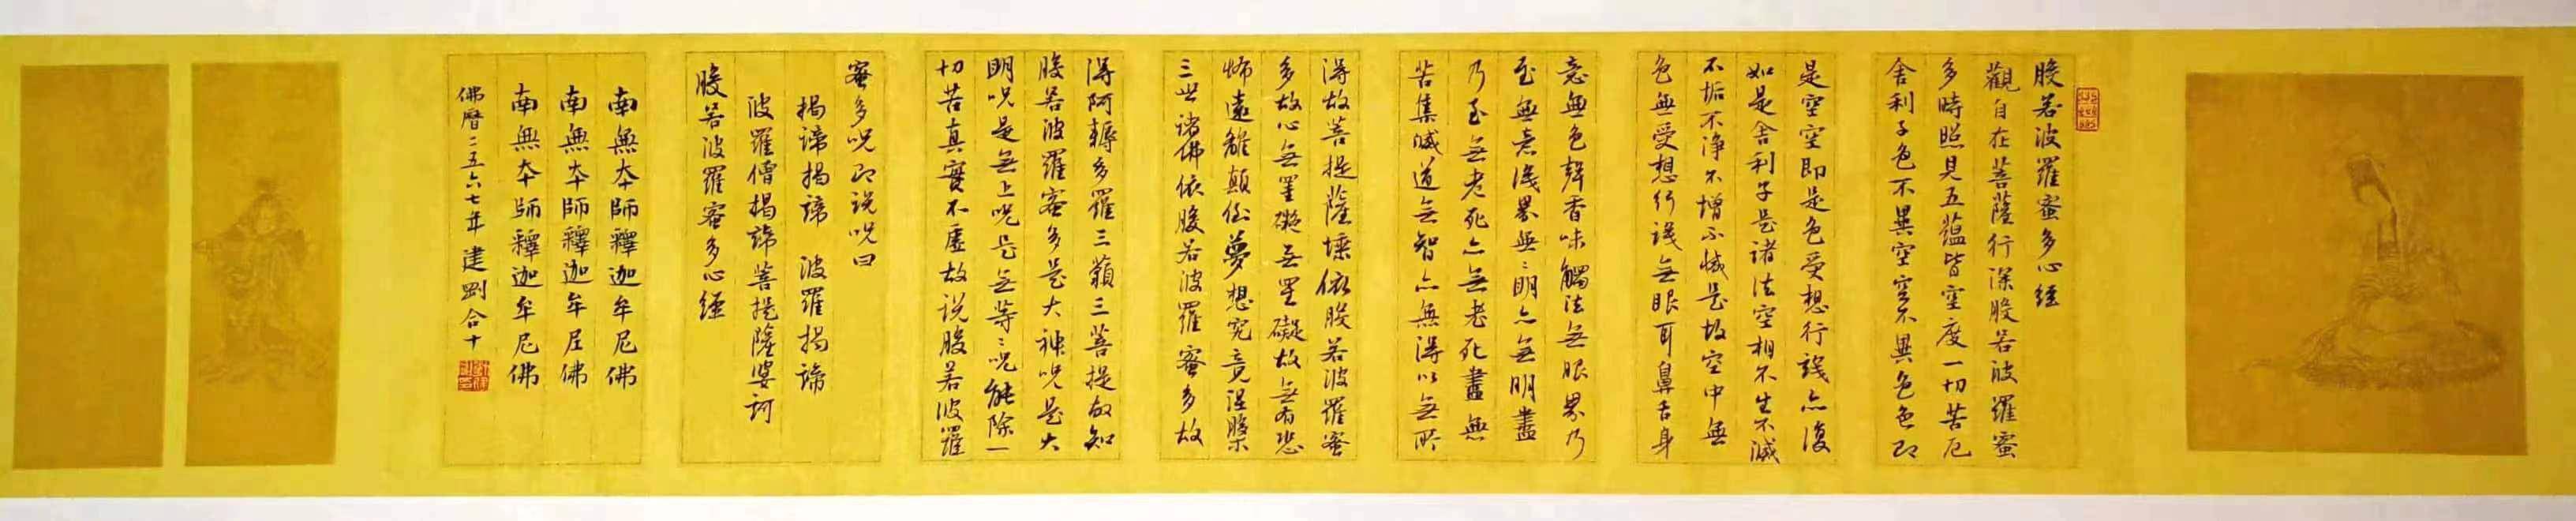 般若波羅蜜多心經
觀自在菩薩行深般若波羅蜜
多時照見五蘊皆空度一切苦厄
舍利子色不異空空不異色色即
是空空即是色受想行識亦復
如是舍利子是諸法空相不生不滅
不垢不淨不增不減是故空中無
色無受想行識無眼耳鼻舌身
意無色聲香味觸法無眼界乃
至無意識界無〻明亦無明盡
乃至無老死亦無老死盡無
苦集滅道無智亦無得以無所
得故菩提薩埵依般若波羅蜜
多故心無罣礙無罣礙故無有恐
怖遠離顛倒夢想究竟涅槃
三世諸佛依般若波羅蜜多故
得阿耨多羅三藐三菩提故知
般若波羅蜜多是大神咒是大
明咒是無上咒是無等〻咒能除一
切苦真實不虛故説般若波羅
蜜多咒即説咒曰
揭諦揭諦 波羅揭諦
波羅僧揭諦菩提薩婆訶
般若波羅蜜多心經
南無本師釋迦牟尼佛
南無本師釋迦牟尼佛
南無本師釋迦牟尼佛
佛曆二五六七年 建剛合十